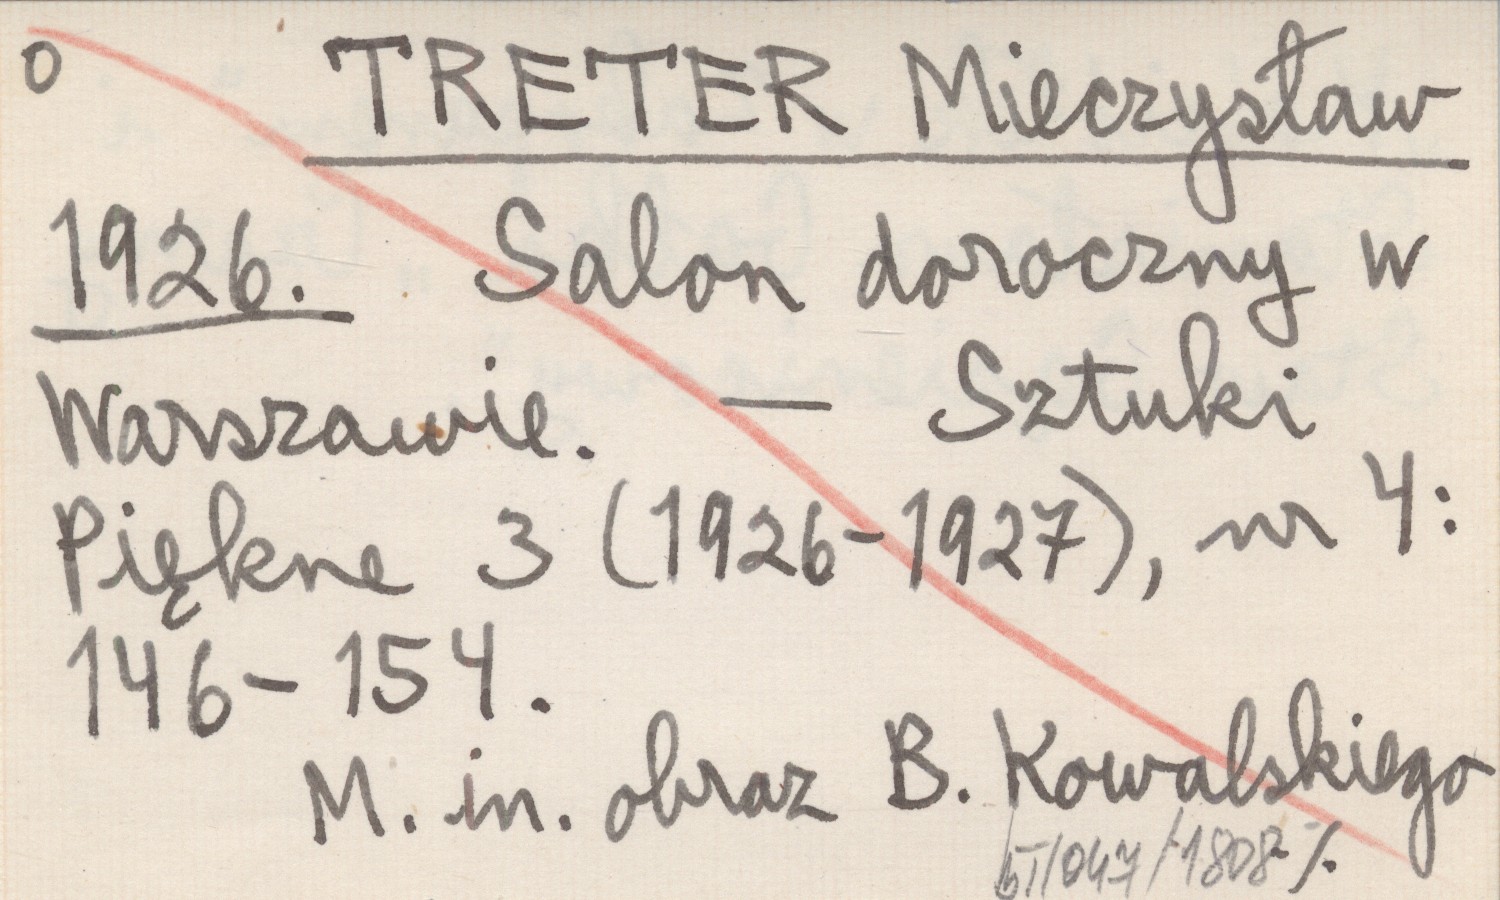 o TRETER Mieczysław
1926. Salon doroczny w
Warszawie. — Sztuki
Piękne 3 (1926-1927), nr 4:
146-154.
M. in. obraz B. Kowalskiego
/047/1808 %